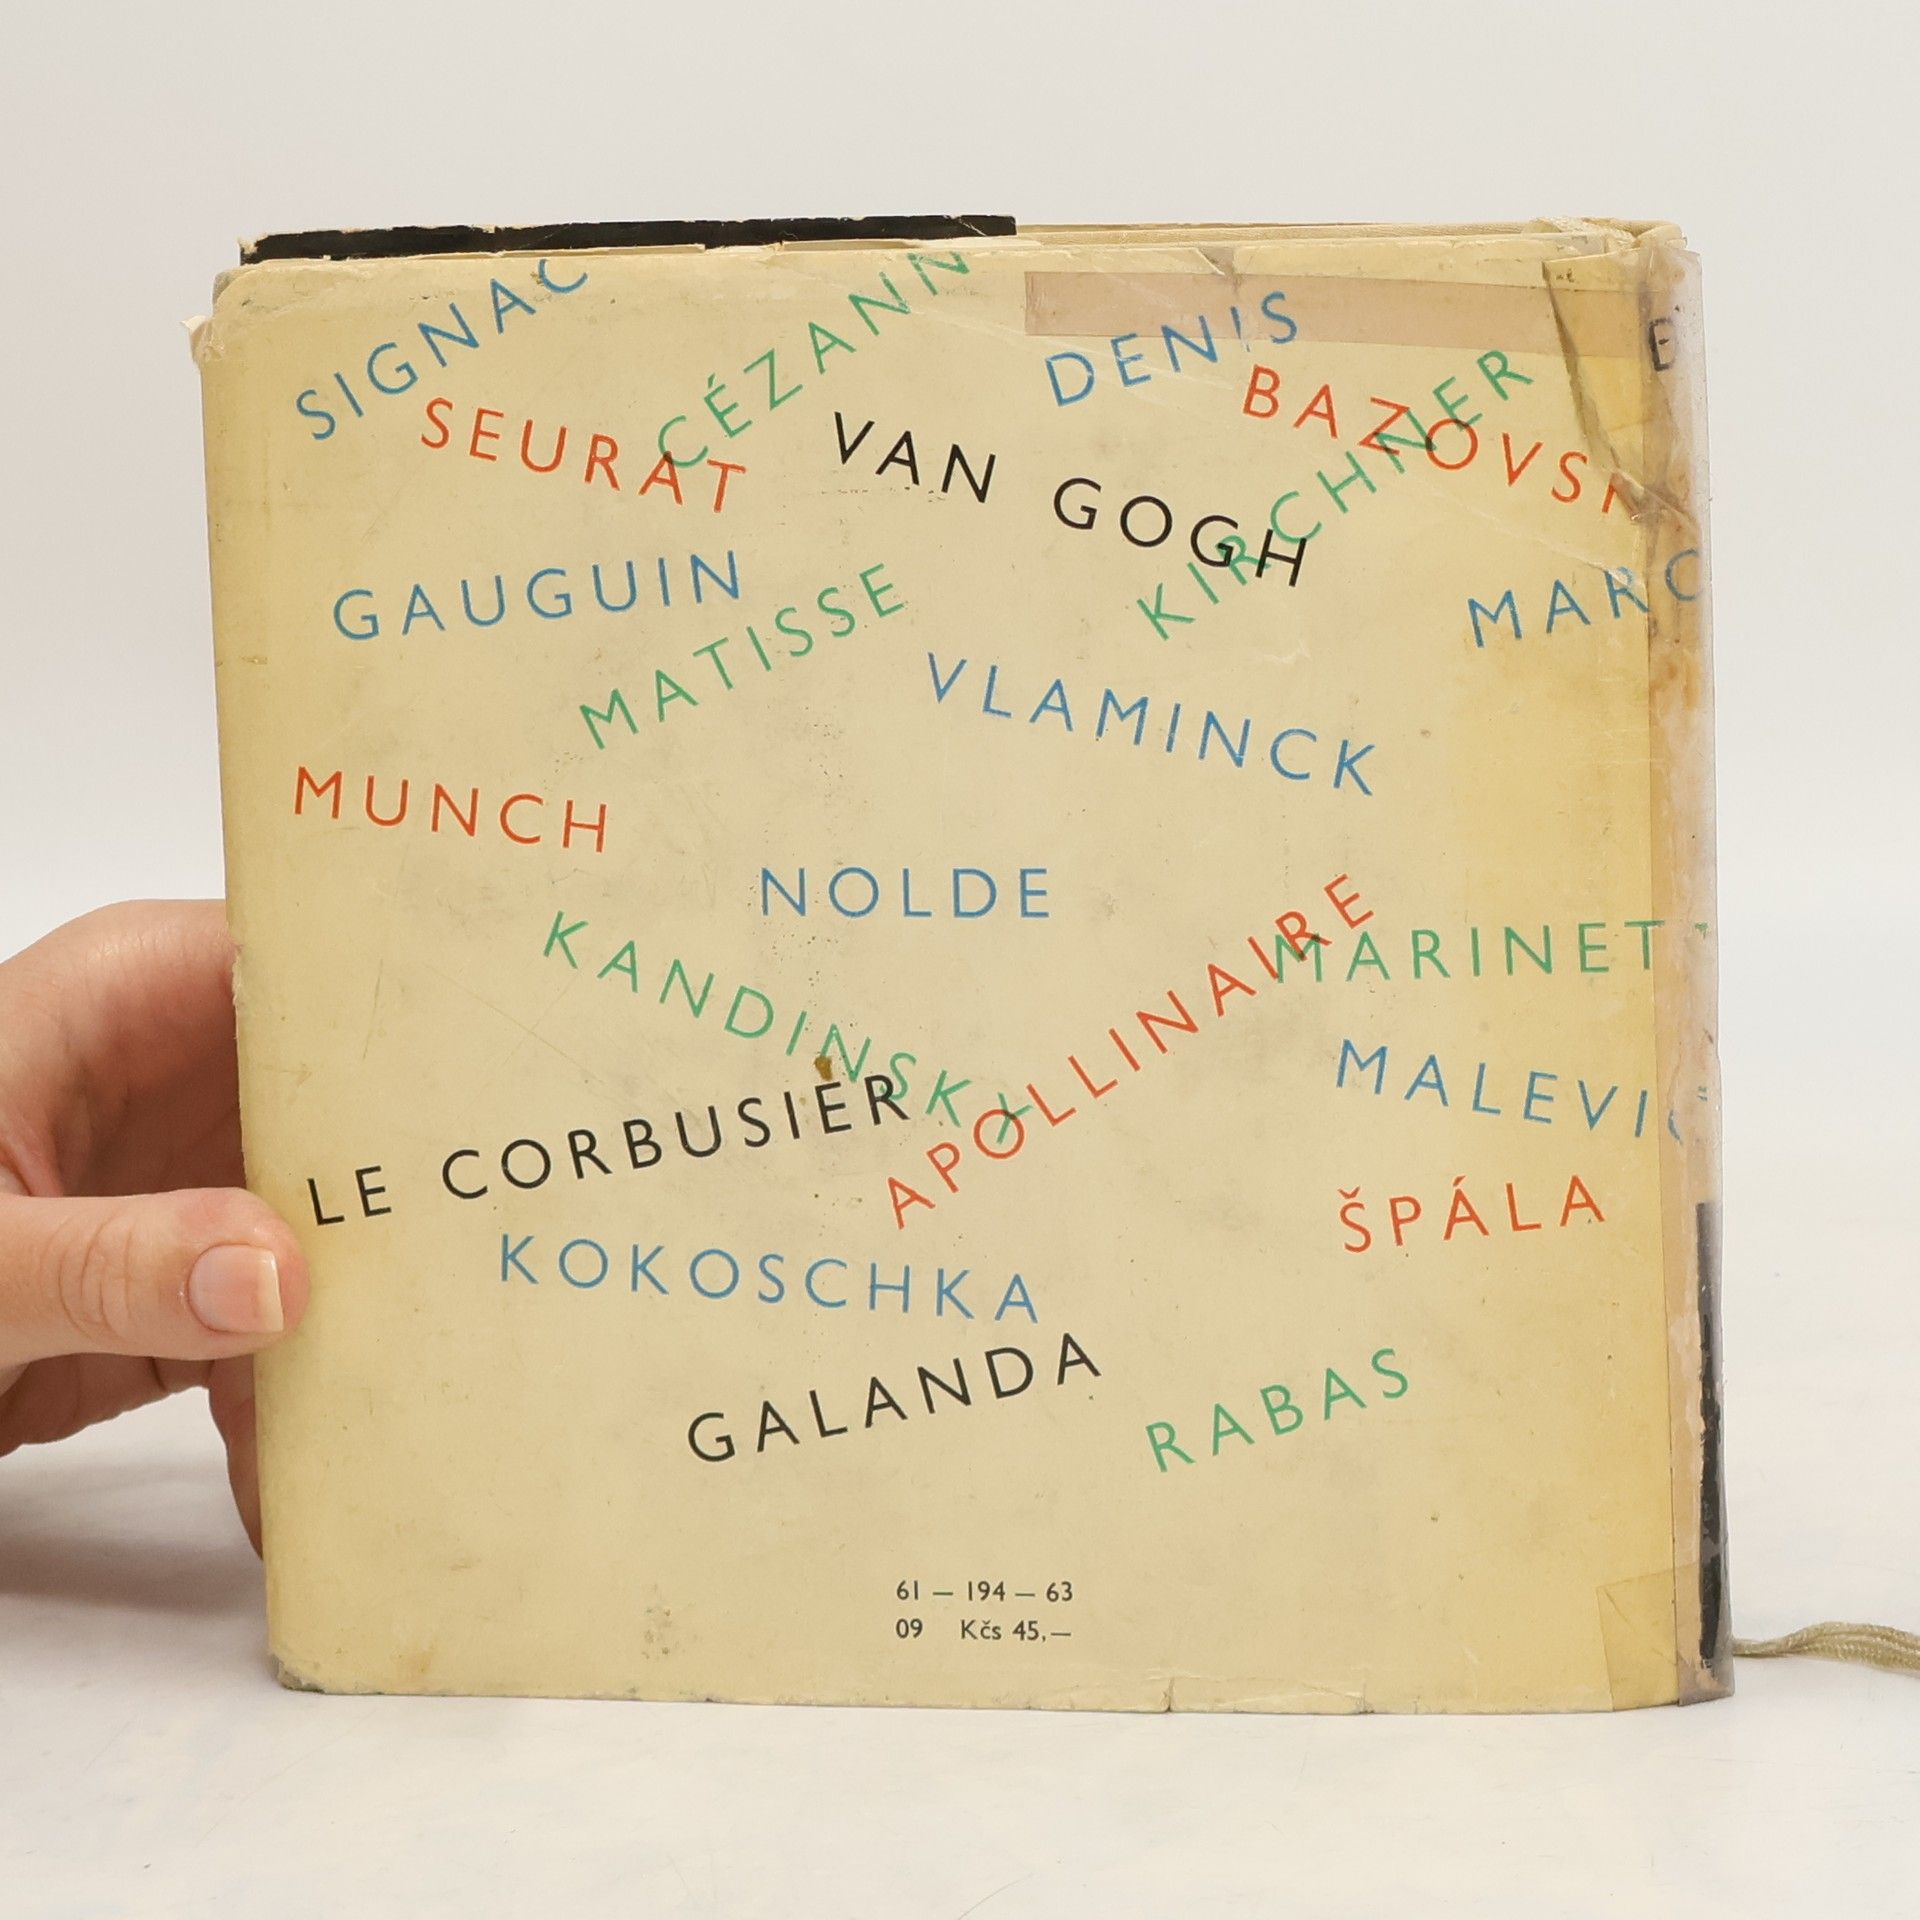 SIGNAC
CÉZANN
DENIS
SEURAT
BAZOVSK
VAN GOGH
KIRCHNER
GAUGUIN
MARC
MATISSE
VLAMINCK
MUNCH
NOLDE
KANDINSKY
APOLLINAIRE
MARINETT
LE CORBUSIER
MALEVIČ
ŠPÁLA
KOKOSCHKA
GALANDA
RABAS
61 — 194 — 63
09 Kčs 45,—